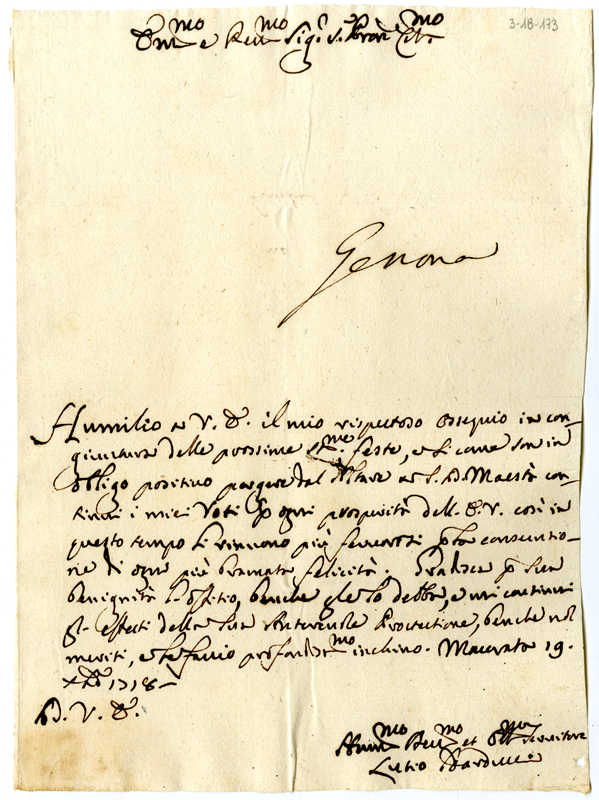 3-18-173
E.mo e Rev.mo Sig.r Pron Col.mo
Genova
Humilio a V. E. il mio rispettoso ossequio in con-
giuntura delle prossime SS.me feste, e si come son in
obligo positivo porgere dal Altare a S. D. Maestà con-
tinui i miei Voti p ogni prosperità dell. E. V. così in
questo tempo li rinnovo più ferventi p la consecutio-
ne di ogni più bramata felicità. Gradisca p sua
benignità l'offitio, benche glelo debba, e mi continui
gl. effetti della Sua Protettione, benche nol
meriti, e le faccio profondiss.mo inchino. Macerata 19.
Xbre 1718
D. V. E.
Hum.mo Dev.mo et Obl.mo servitore
Lutio